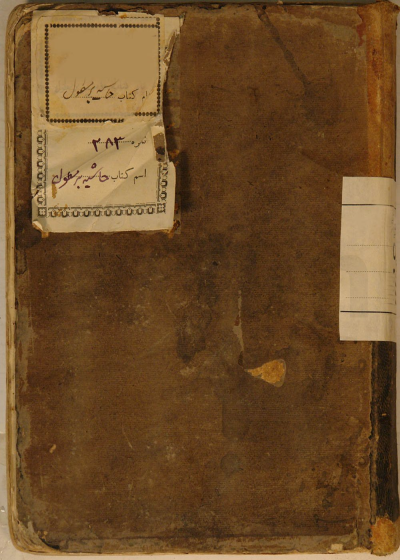 اسم کتاب حاشیه بر معقول
نمره ۲۸۳
اسم کتاب حاشیه بر معقول